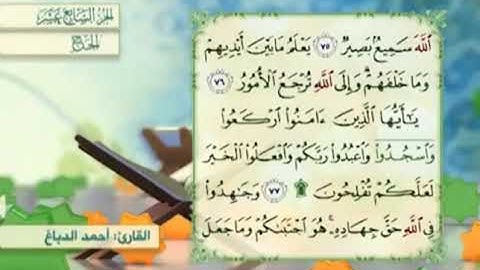 الجزء السابع عشر
الحج
ٱللَّهَ سَمِيعٌۢ بَصِيرٌ ٧٥ يَعْلَمُ مَا بَيْنَ أَيْدِيهِمْ
وَمَا خَلْفَهُمْ ۗ وَإِلَى ٱللَّهِ تُرْجَعُ ٱلْأُمُورُ ٧٦
يَٰٓأَيُّهَا ٱلَّذِينَ ءَامَنُوا۟ ٱرْكَعُوا۟
وَٱسْجُدُوا۟ وَٱعْبُدُوا۟ رَبَّكُمْ وَٱفْعَلُوا۟ ٱلْخَيْرَ
لَعَلَّكُمْ تُفْلِحُونَ ۩ ٧٧ وَجَٰهِدُوا۟
فِى ٱللَّهِ حَقَّ جِهَادِهِۦ ۚ هُوَ ٱجْتَبَىٰكُمْ وَمَا جَعَلَ
القارئ: أحمد الدباغ